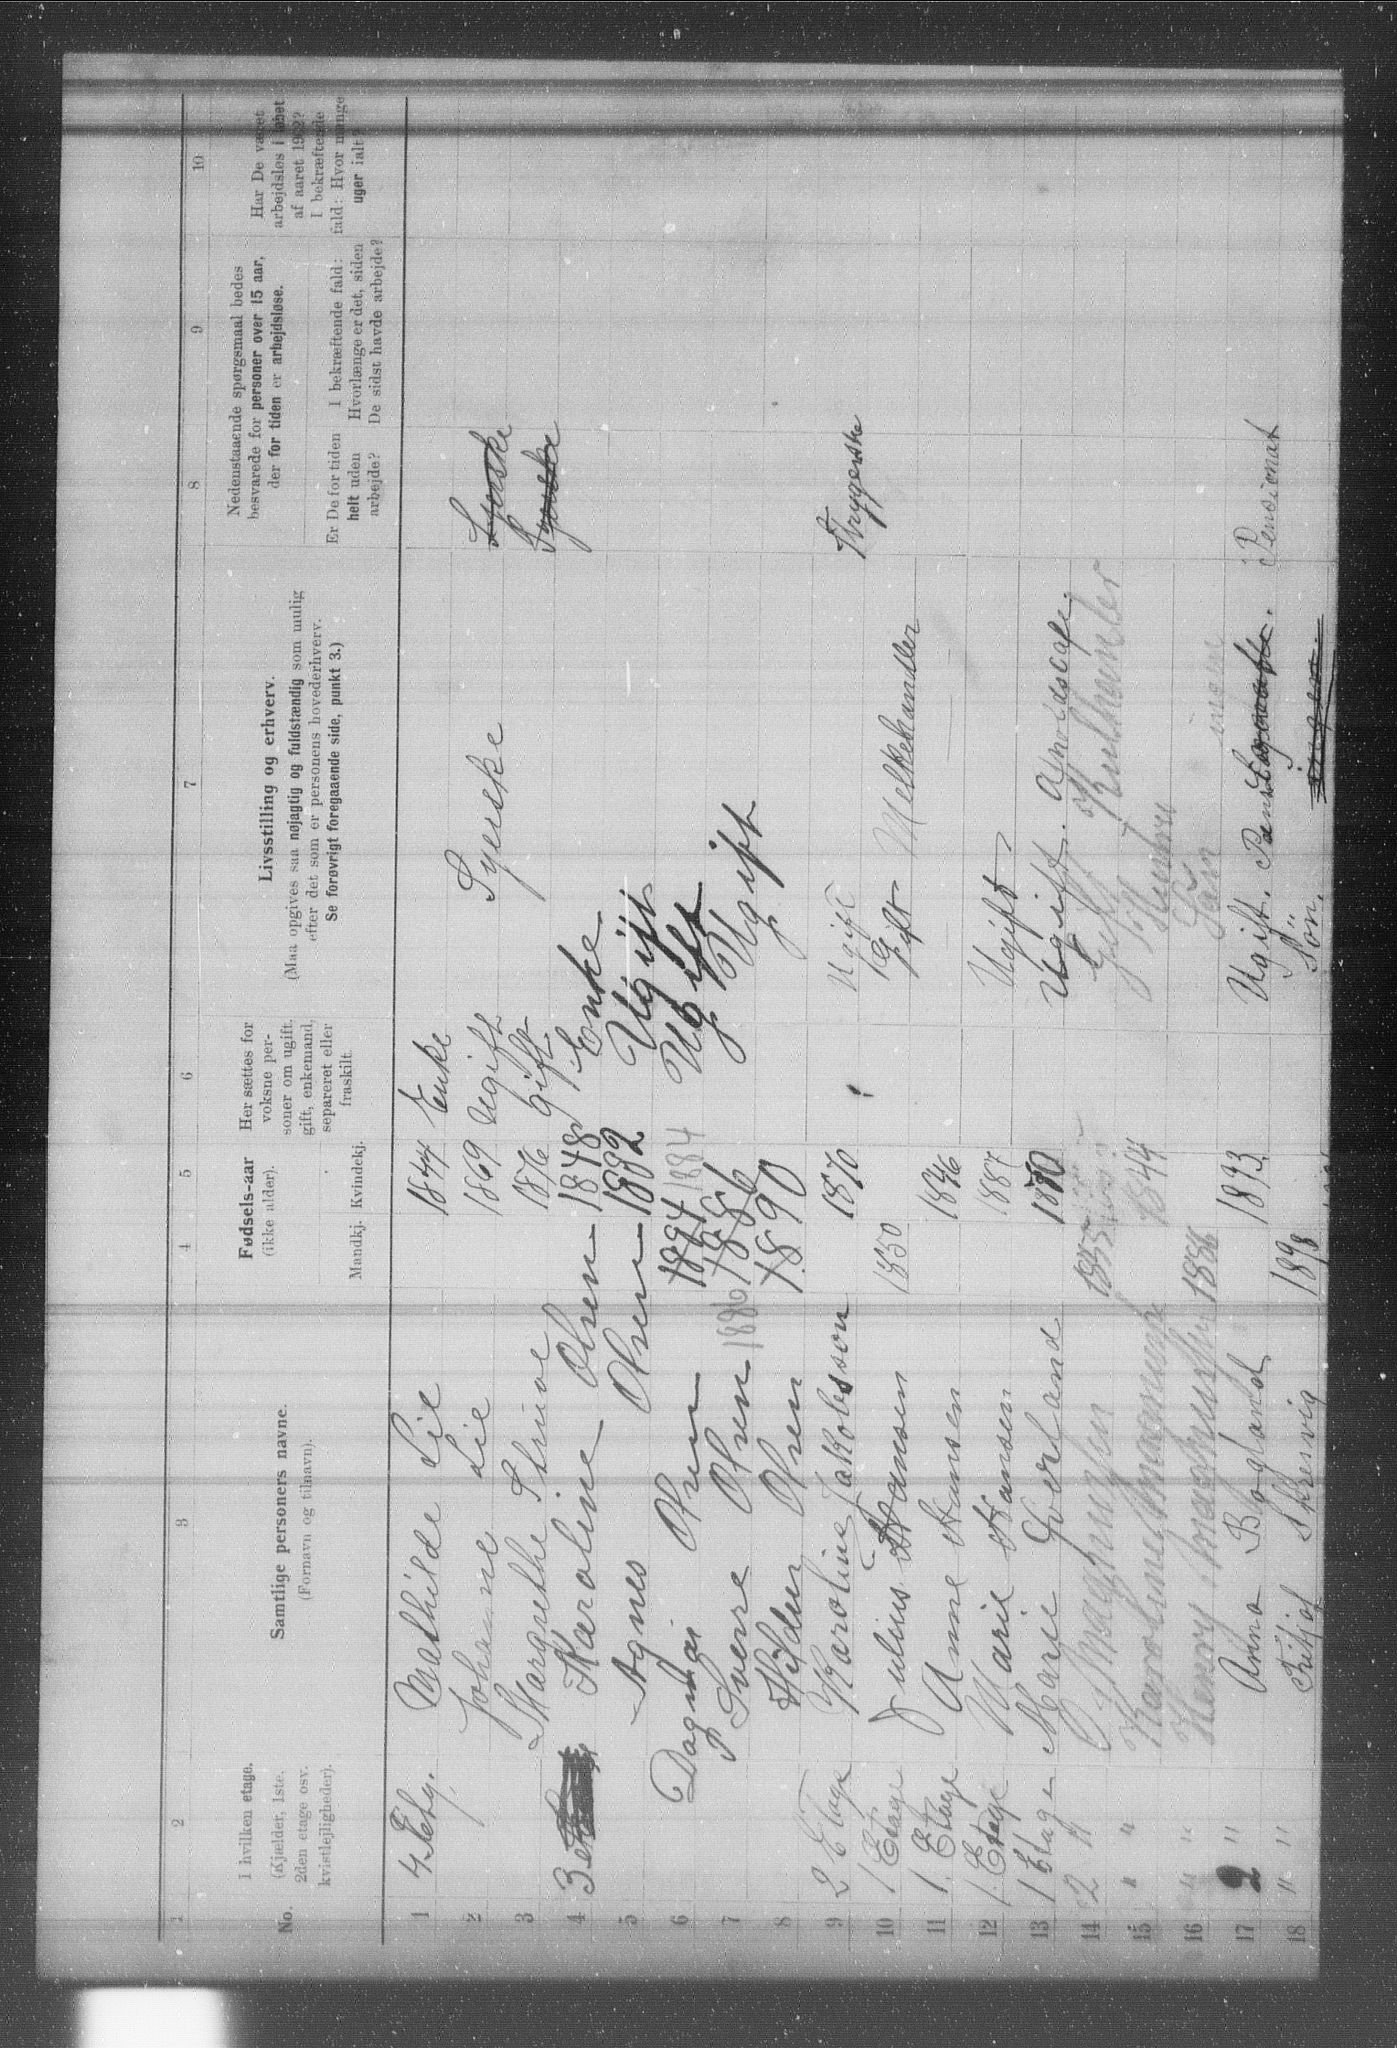 1 2 3 4 5 6 7 8 9 10
No.
I hvilken etage.
(Kjælder, 1ste.
2den etage osv.
kvistlejligheder).
Samtlige personers navne.
(Fornavn og tilnavn).
Fødsels-aar
(ikke alder).
Mandkj. Kvindekj.
Her sættes for
voksne per-
soner om ugift,
gift, enkemand,
separeret eller
fraskilt.
Livsstilling og erhverv.
(Maa opgives saa nøjagtig og fuldstændig som mulig
efter det som er personens hovederhverv.
Se forøvrigt foregaaende side, punkt 3.)
Nedenstaaende spørgsmaal bedes
besvarede for personer over 15 aar,
der for tiden er arbejdsløse.
Er De for tiden
helt uden
arbejde?
I bekræftende fald:
Hvorlænge er det, siden
De sidst havde arbejde?
Har De været
arbejdsløs i løbet
af aaret 1902?
I bekræftende
fald: Hvor mange
uger ialt?
1 4 Etg. Mathilde Lie 1844 Enke
2 Johanne Lie 1869 Ugift Syerske Syerske
3 Margrethe Struve 1876 Gift Syerske
4 3 Et Karoline Olsen 1848 Enke
5 Agnes Olsen 1882 Ugift
6 Dagmar Olsen 1884 1884 Ugift
7 Sverre Olsen 1886 1886 Ugift
8 Hildur Olsen 1890 Ugift
9 2 Etage Karoline Jakobsson 1870 Ugift Strygerske
10 1 Etage Julius Hansen 1850 Gift Melkehandler
11 1. Etage Anne Hansen 1846
12 1. Etage Marie Hansen 1887 Ugift
13 1 Etage Marie Lorland 1870 Ugift.
14 2 " Magnussen 1855 Gift Kulhandler
15 " " Karoline Magnussen 1844 Hustru
16 " " Henry Magnussen 1886 Søn ingen
17 2 " Anna Bogland 1873 Ugift. Pensionat
18 " " Fritjof Skresvig 1898 Søn. ingen.